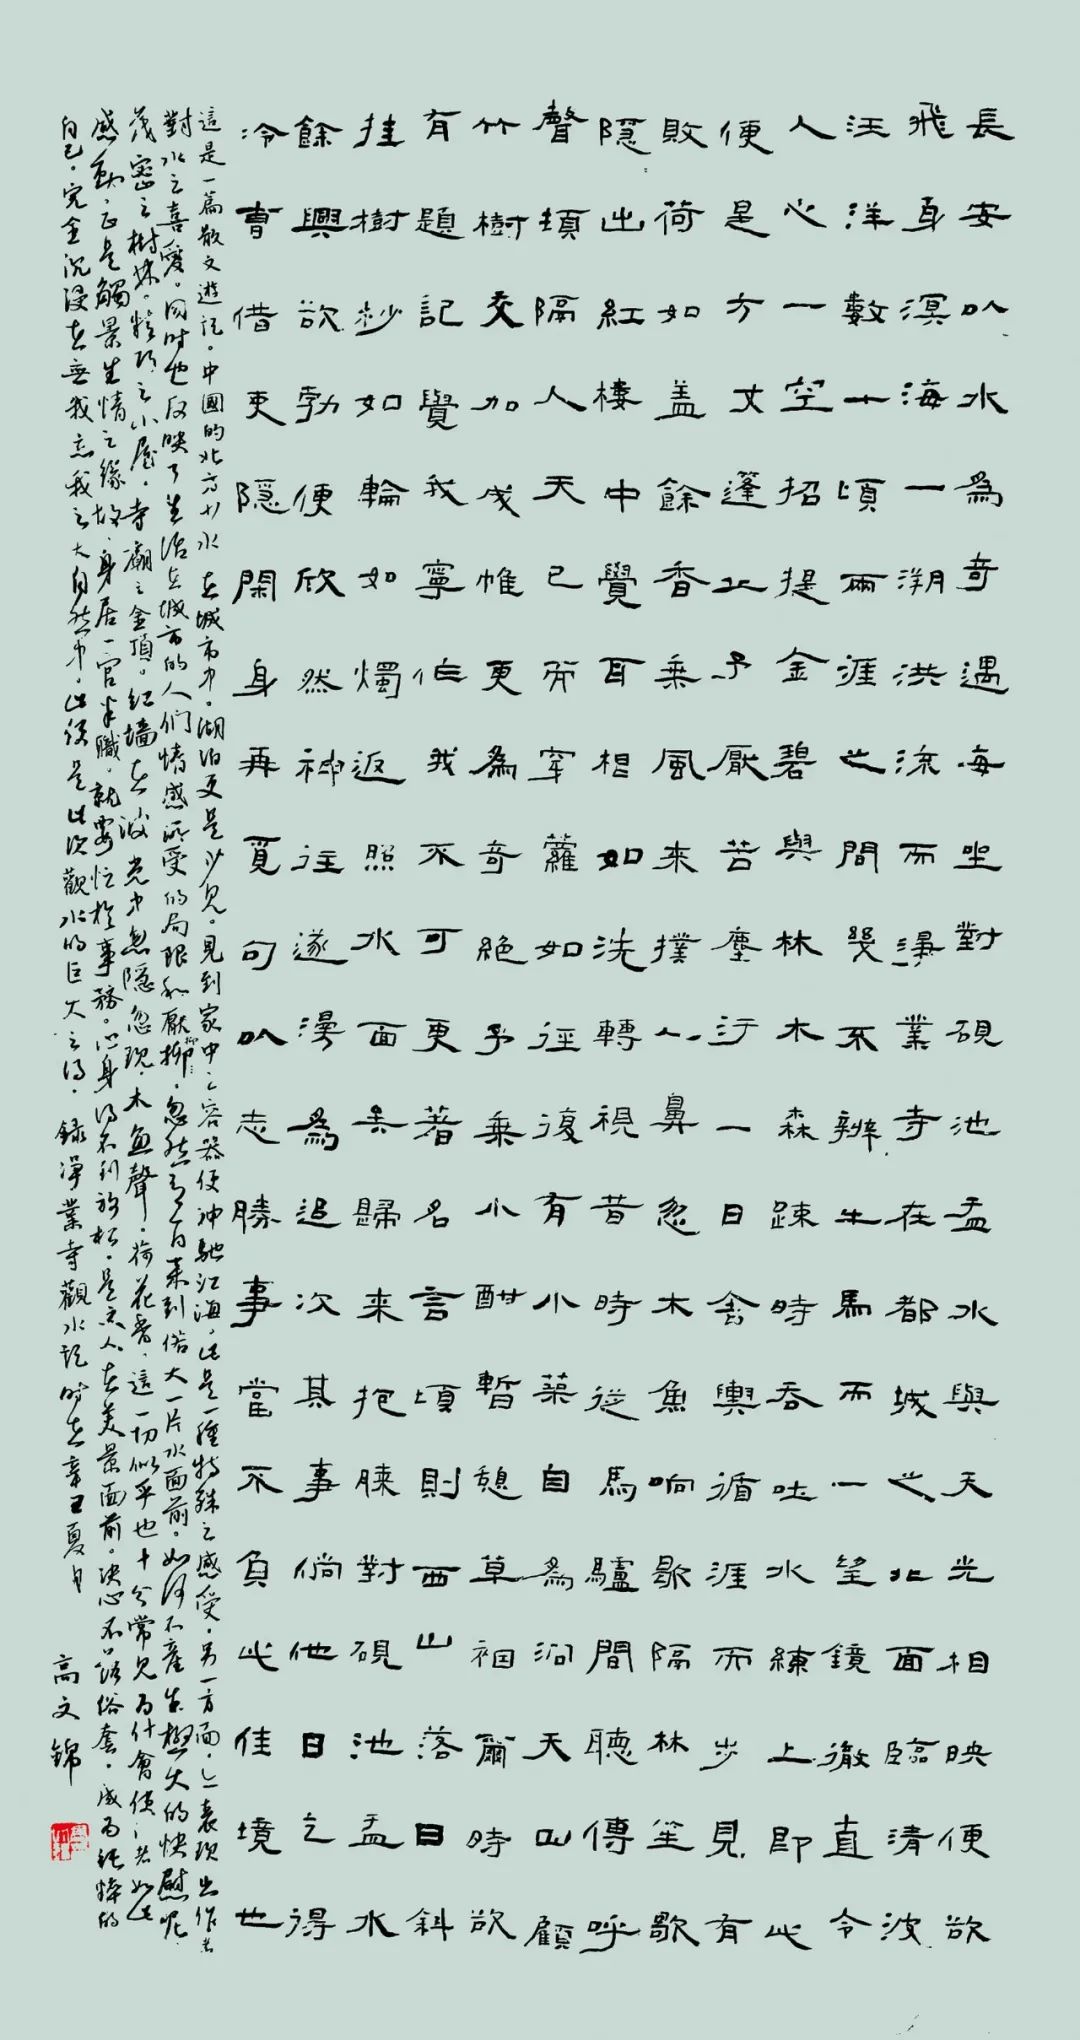 長安以水為奇遇每坐對硯池盂水與天光相映便欲
飛身溟海一溯洪流而淨業寺在都城之北面臨清波
汪洋數十頃兩涯之間幾不辨牛馬而一望鏡徹直令
人心一空招提金碧與林木森疎時吞吐水練上即此
便是方丈蓬上予厭苦塵汙一日舍輿循涯而步見有
敗荷如盖餘香乘風來撲人鼻忽木魚响歇隔林笙歌
隱出紅樓中覺耳相如洗轉視昔時從馬驢間聽傳呼
聲頃隔人天已而穿蘿如徑復有小築自為洞天回顧
竹樹交加成帷更為奇絕予乘小酣暫憩草裀爾時欲
有題記覺我寧作我不可更著名言頃則西山落日斜
挂樹杪如輪如燭返照水面歸來抱膝對硯池盂水
餘興欲勃便欣然神往遂漫為追次其事倘他日之得
冷曹借更隱閑身再覓句以志勝事當不負此佳境也
這是一篇散文遊記。中國的北方少水在城市中，湖泊更是少見。見到家中之容器便神馳江海。此是一種特殊之感受。另一方面，也表現出作者
對水之喜愛。同時也反映了生活在城市的人們情感所受的局限和厭抑。忽然有一日来到偌大一片水面前。如何不產生極大的快慰呢
茂密之樹林，精巧之小屋，寺廟之金頂。紅墻在波光中忽隱忽現，木魚聲，荷花香，這一切似乎也十分常見為什會使作者如此
感動，正是觸景生情之緣故，身居一官半職，就要忙於事務。心身得不到放松，是衆人在美景面前。決心不落俗套，成為純粹的
自己。完全沉浸在無我忘我之大自然中，此後是此次觀水的巨大之得。錄淨業寺觀水記時在辛丑夏月
高文錦